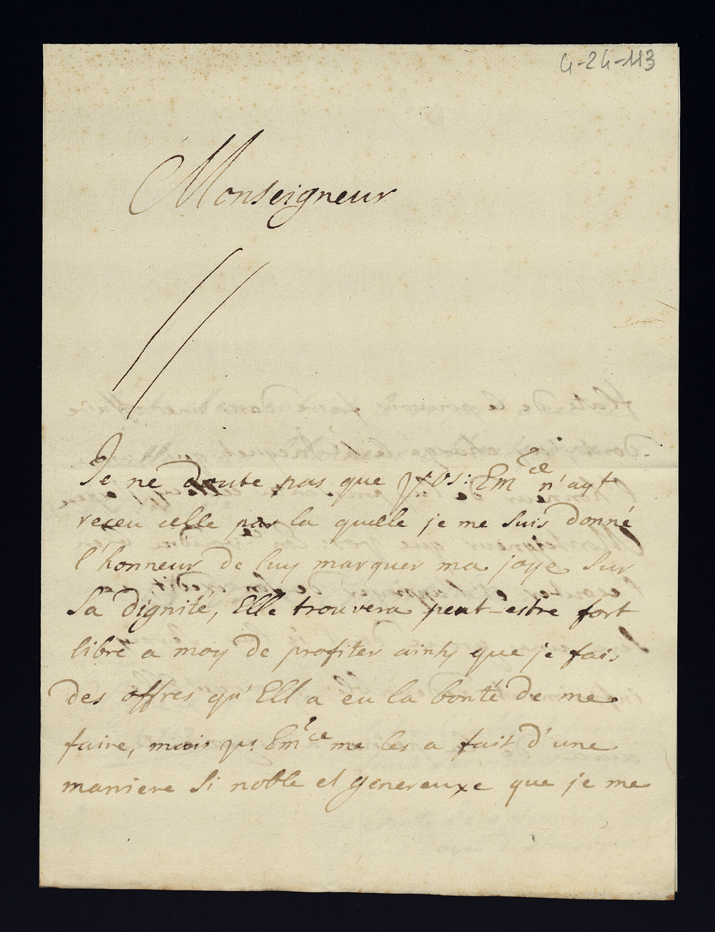 4-24-113
Monseigneur
Je ne doute pas que vos: Em.ce n'ayt
receu celle par la quelle je me suis donné
l'honneur de luy marquer ma joye sur
sa dignité, Elle trouvera peut-estre fort
libre a moy de profiter ainsy que je fais
des offres qu'Ell a eu la bonté de me
faire, mais vs Em.ce me les a fait d'une
maniere si noble et genereuxe que je me